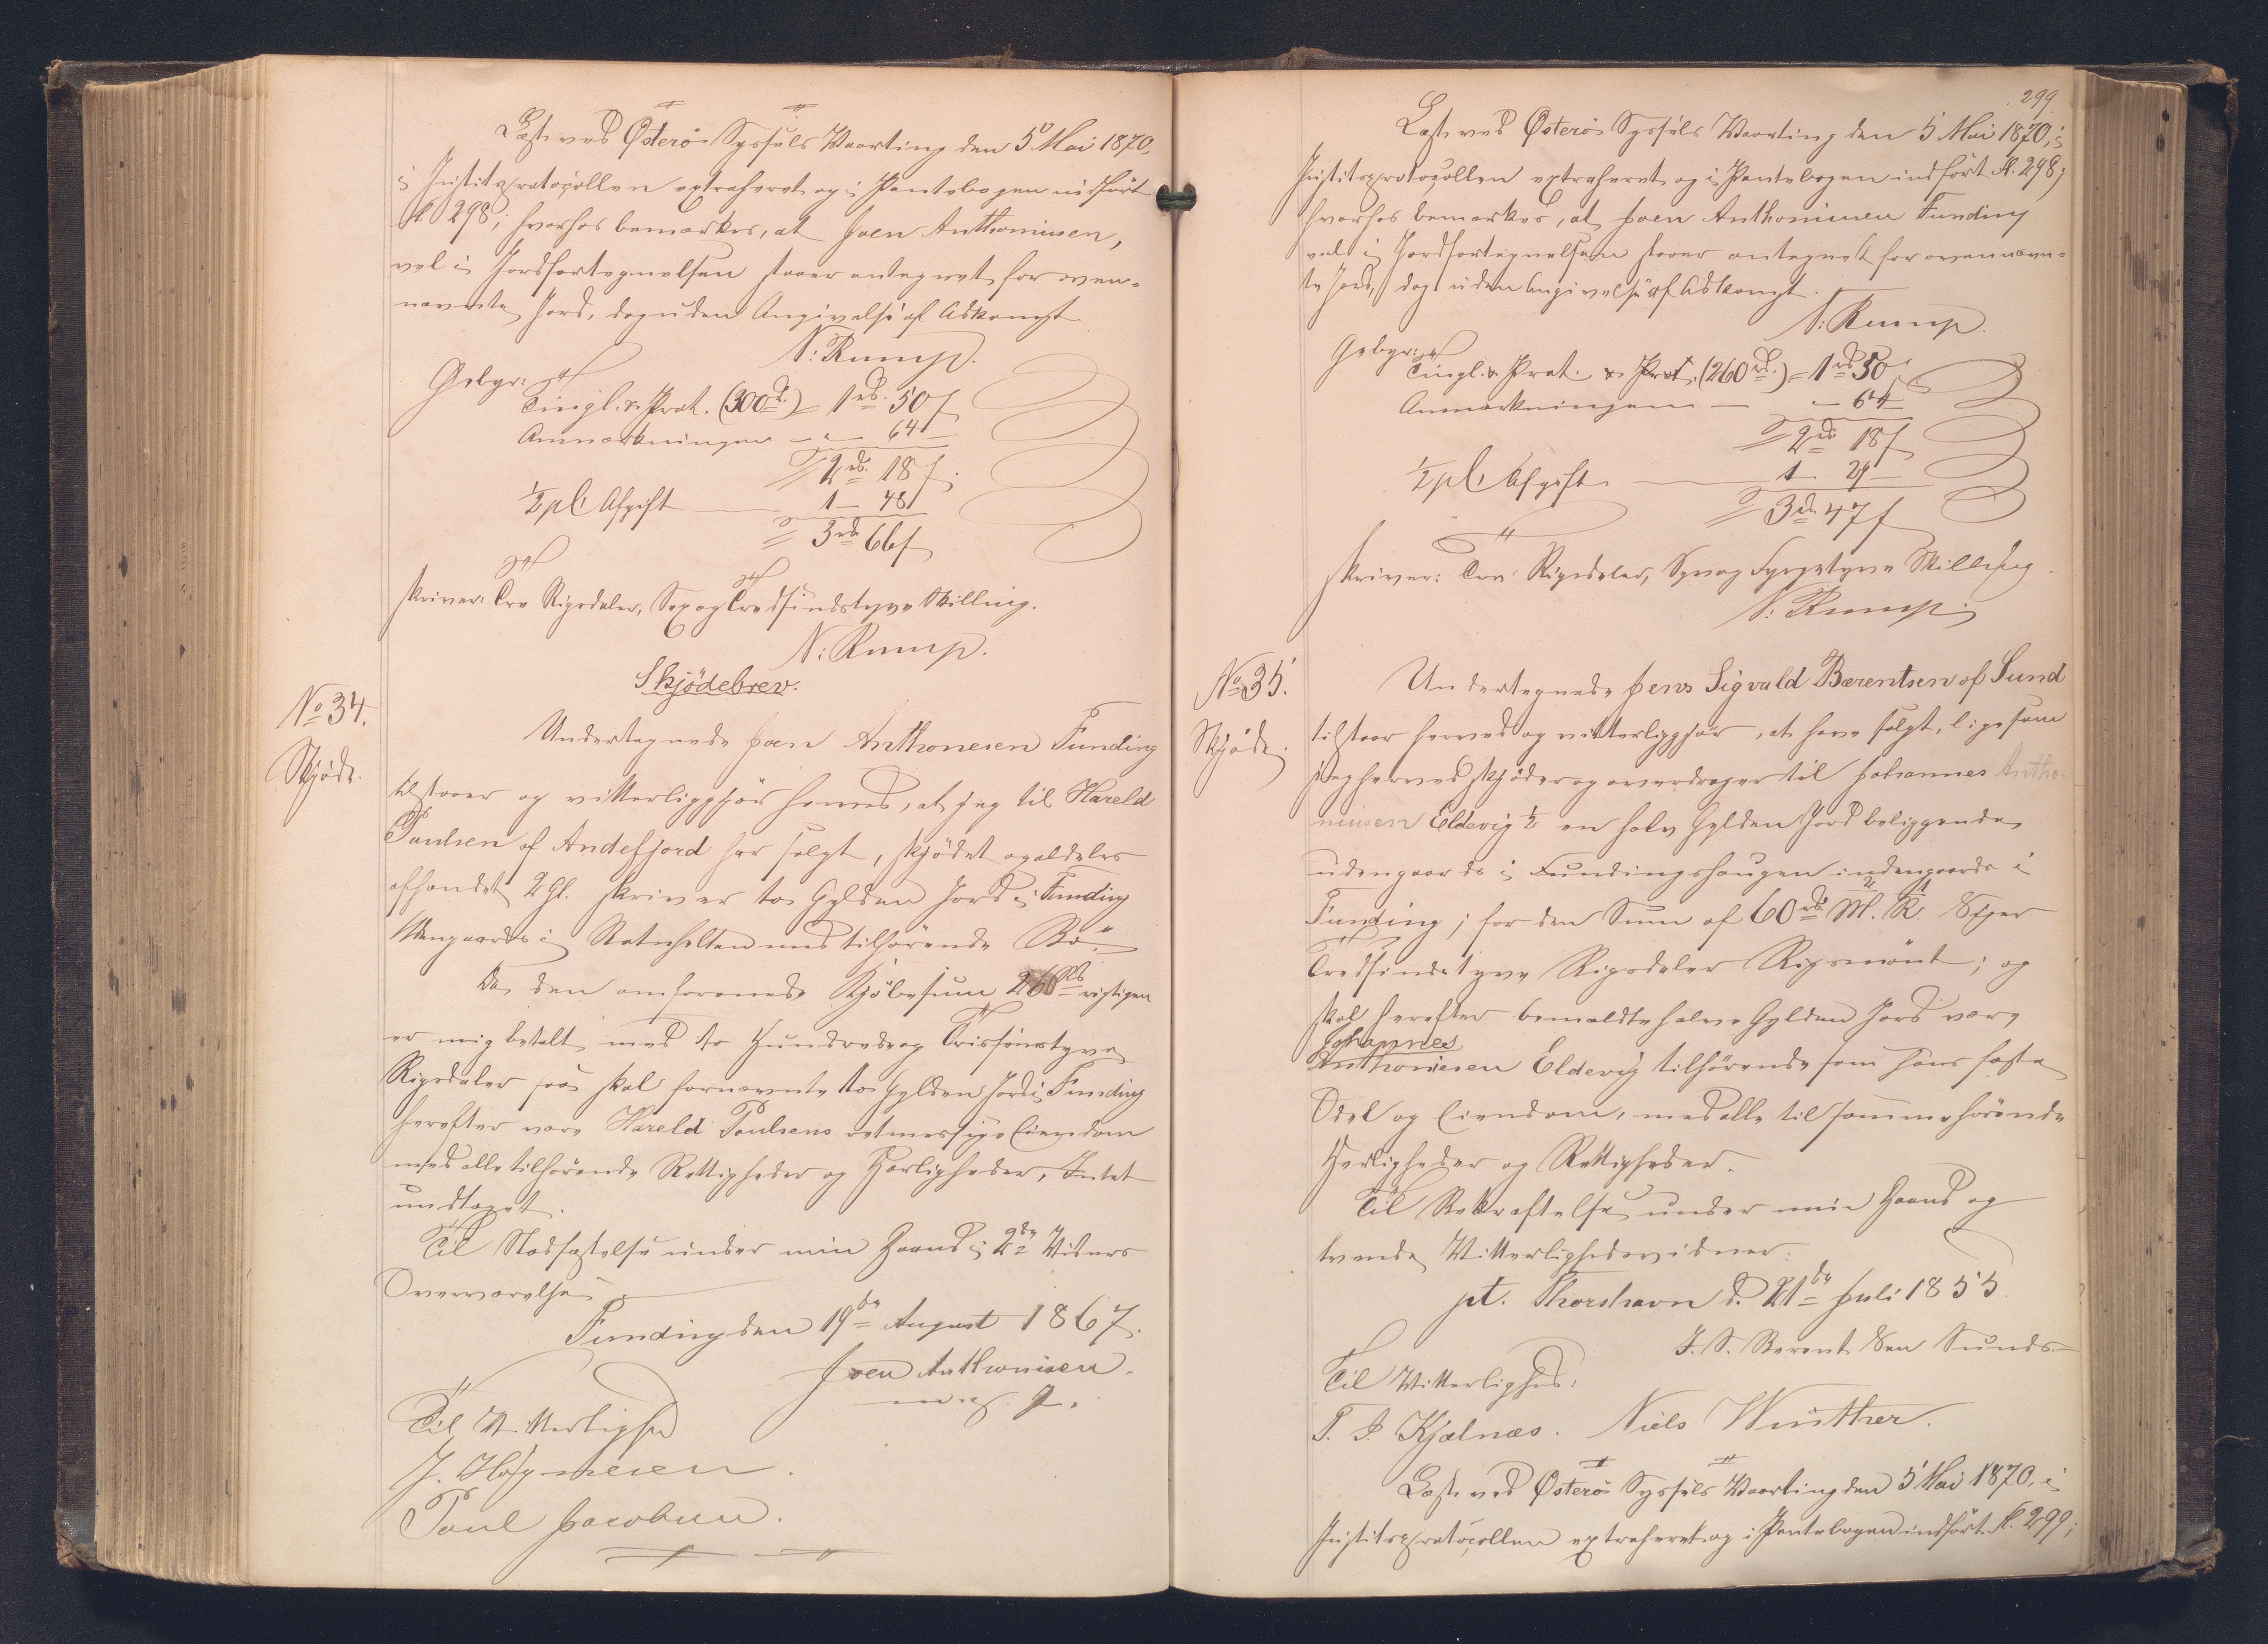 Læst ved Österö Syssels Vaarting den 5' Mai 1870,
i Justitsprotocollen extraheret og i Pantebogen indført
fl. 298; hvorhos bemærkes, at Joen Anthoniusen,
vel i Jordfortegnelsen staaer antegnet for oven-
nævnte Jord, dog uden Angivelse af Adkomst.
N: Rump.
Gebyr:
Tingl. & Prot. (300 rd.) = 1 rd. 50 s
Anmærkningen - - 64 -
= 2 rd. 18 s.
1/2 pCt Afgift 1 - 48
= 3 rd 66 s
skriver: Tre Rigsdaler, Sex og Tredsindstyve Skilling.
N: Rump.
Skjödebrev.
No 34.
Skjöde.
Undertegnede Joen Anthonesen Funding
tilstaaer og vitterliggjør herved, at jeg til Hareld
Poulsen af Andefjord har solgt, skjödet og aldeles
afhændet 2 Gl. skriver to Gylden Jord i Funding
Udengaards i med tilhörende Bö.
Da den omforenede Kjöbesum 260 Rd rigtigen
er mig betalt med to Hundrede og Trissinstyve
Rigsdaler saa skal fornævnte to Gylden Jord i Funding
herefter være Hareld Poulsens retmessige Eiendom
med alle tilhörende Rettigheder og Herligheder, Intet
undtaget.
Til Stadfæstelse under min Haand i 2de Vidners
Overværelse.
Funding den 19de August 1867.
Joen Anthonisen.
Til Vitterlighed
J.
Poul Jacobsen.
299.
Læst ved Österö Syssels Vaarting den 5 Mai 1870, i
Justitsprotocollen extraheret og i Pantebogen indført fl. 298;
hvorhos bemærkes, at Joen Anthoniusen Funding
vel i Jordfortegnelsen staaer antegnet for ovennævn-
te Jord, dog uden Angivelse af Adkomst.
N: Rump.
Gebyr:
Tingl. & Prot. & Prot. (260 rd.) = 1 rd 50
Anmærkningen - - 64
= 2 rd 18 s
1/2 pCt Afgift 1 - 29 -
= 3 rd. 47 s
skriver: Tre Rigsdaler, Syv og Fyrgetyve Skilling.
N: Rump.
No 35.
Skjöde.
Undertegnede Jens Sigvald Bærentsen af Sund
tilstaar herved og vitterliggjör, at have solgt, ligesom
jeg herved skjöder og overdrager til Johannes Antho-
niusen Eldevig 1/2 en halv Gylden Jord beliggende
udengaards i Fundingshaugen indengaards i
Funding; for den Sum af 60 rd. M. R. Siger
Tredsindstyve Rigsdaler Rigsmönt; og
skal herefter bemældte halve Gylden Jord være
Johannes
Anthoniesen Eldevig tilhörende som hans faste
Odel og Eiendom, med alle til samme hörende
Herligheder og Rettigheder.
Til Bekræftelse under min Haand og
tvende Vitterlighedsvidner:
pt. Thorshavn d. 21de Juli 1855.
J. S. Berentsen Sund.
Til Vitterlighed:
P. J. Kjælnæs. Niels Winther.
Læst ved Österö Syssels Vaarting den 5' Mai 1870, i
Justitsprotocollen extraheret og i Pantebogen indført fl. 299;